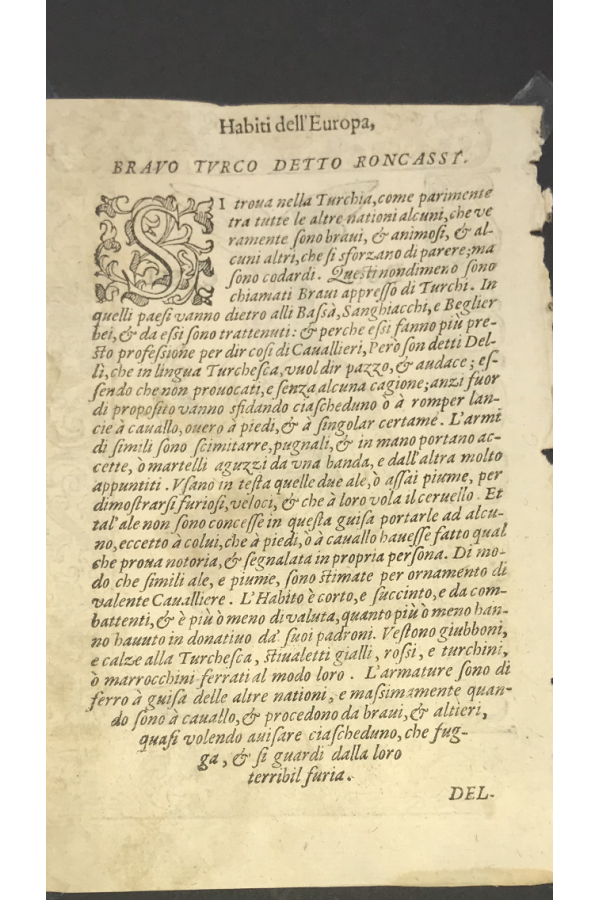 Habiti dell'Europa,
BRAVO TVRCO DETTO RONCASSI.
SI troua nella Turchia, come parimente
tra tutte le altre nationi alcuni, che ve
ramente ſono braui, & animoſi, & al-
cuni altri, che ſi sforzano di parere; ma
ſono codardi. Queſti nondimeno ſono
chiamati Braui appreſſo di Turchi. In
quelli paeſi vanno dietro alli Baſsà, Sanghiacchi, e Beglier
bei, & da eſsi ſono trattenuti: & perche eſsi fanno più pre-
ſto profeſsione per dir coſi di Cauallieri, Però ſon detti Del-
lì, che in lingua Turcheſca, vuol dir pazzo, & audace; eſ-
ſendo che non prouocati, e ſenza alcuna cagione; anzi fuor
di propoſito vanno sfidando ciaſcheduno ò à romper lan-
cie à cauallo, ouero à piedi, & à ſingolar certame. L'armi
di ſimili ſono ſcimitarre, pugnali, & in mano portano ac-
cette, ò martelli aguzzi da vna banda, e dall'altra molto
appuntiti. Vſano in teſta quelle due ale, ò aſſai piume, per
dimoſtrarſi furioſi, veloci, & che à loro vola il ceruello. Et
tal'ale non ſono conceſſe in queſta guiſa portarle ad alcu-
no, eccetto à colui, che à piedi, ò à cauallo haueſſe fatto qual
che proua notoria, & ſegnalata in propria perſona. Di mo-
do che ſimili ale, e piume, ſono ſtimate per ornamento di
valente Caualliere. L'Habito è corto, e ſuccinto, e da com-
battenti, & è più ò meno di valuta, quanto più ò meno han-
no hauuto in donatiuo da' ſuoi padroni. Veſtono giubboni,
e calze alla Turcheſca, ſtiualetti gialli, roſsi, e turchini,
ò marrocchini ferrati al modo loro. L'armature ſono di
ferro à guiſa delle altre nationi, e maſsimamente quan-
do ſono à cauallo, & procedono da braui, & altieri,
quaſi volendo auiſare ciaſcheduno, che fug-
ga, & ſi guardi dalla loro
terribil furia.
DEL-